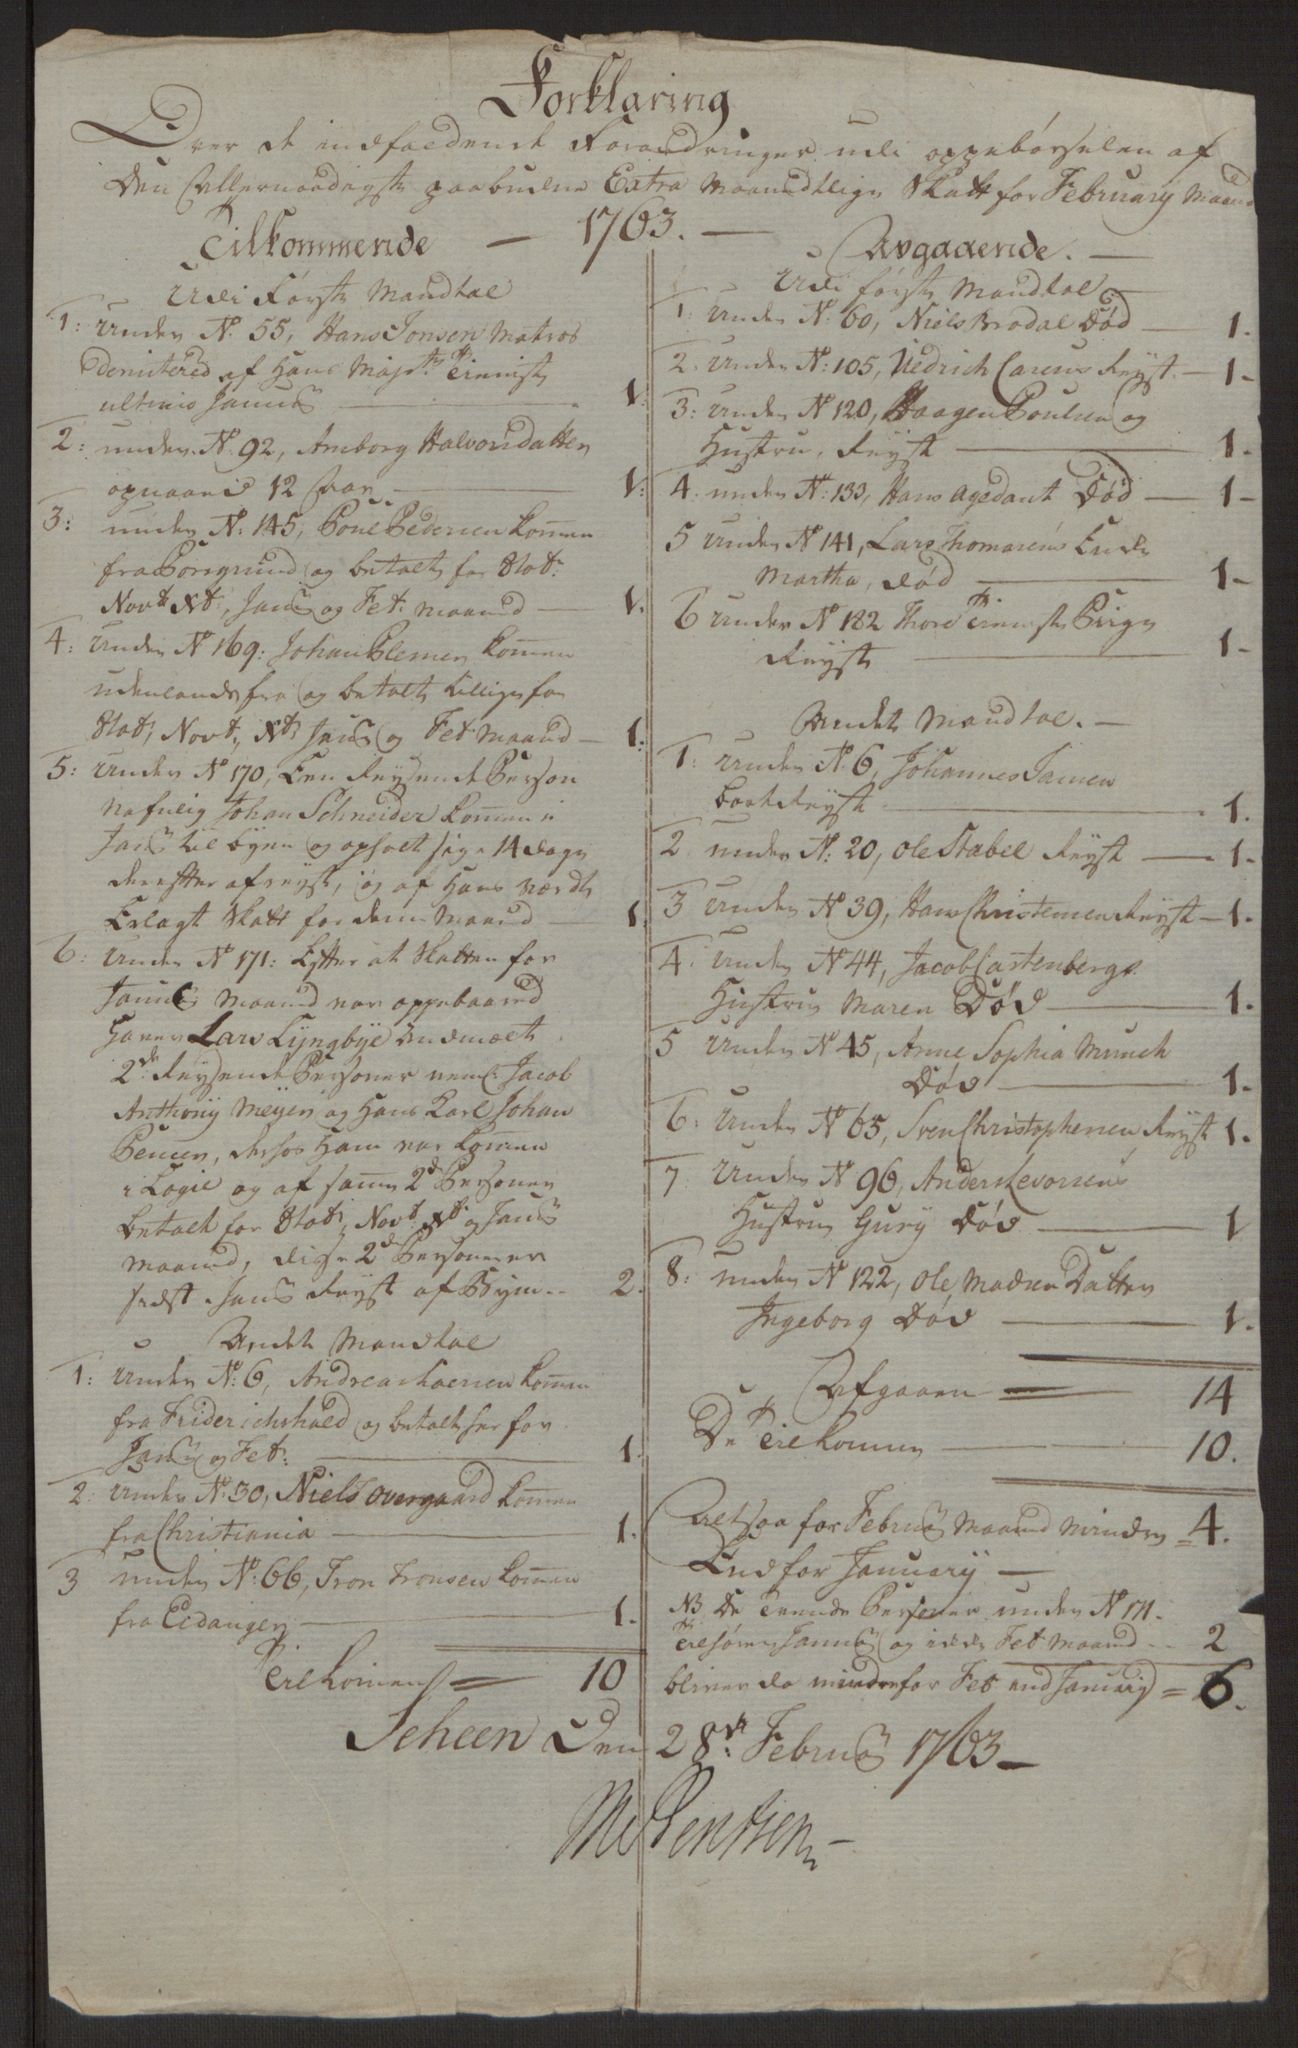 Forklaring
Over de indfaldende Forandringer udi oppebörselen af
Den Allernaadigste paabudne Extra Maanedtlige Skatt for February Maaned
1763.
Tilkommende
Udi Förste Mandtal
1: Under No. 55, Hans Jonsen Matros
Demitered af Hans Mayts Tieniste
ultimo Janus 1.
2: under No. 92, Amborg Halvorsdatter
opnaaed 12 Aar 1.
3: under No. 145, Poul Pedersen kommen
fra Porsgrund og betalt for 8tobr
Novbr Xbr, Janu og Feb: Maaned 1.
4: Under No 169: Johan Clemen kommen
udenlands fra og betalt tillige for
8tobr, Novbr, Xbr Janu og Feb Maaned 1.
5: Under No 170, Een Reysende Person
nafnlig Johan Schneider kommen i
Janu til byen og opholt sig 14 dage
derefter afreyst, og af Hans Vært
Erlagt Skatt for denne Maaned 1.
6: Under No 171: Efter at Skatten for
Janus Maaned var oppebaaren
haver Lars Lyngbye Andmelt
2de Reysende Personer neml: Jacob
Anthony Meyer og Hans Carl Johan
, der hos Ham var kommen
i Logie og af samme 2de Personer
betalt for 8tobr, Novbr Xbr og Janus
Maaned, disse 2de Personer er
sidst i Janus Reyst af Byen 2.
Andet Mandtal
1: Under No: 6, Andreas kommen
fra Friderichshald og betalt her for
Janu og Feb: 1.
2: Under No. 30, Niels Overgaard kommen
fra Christiania 1.
3 under No: 66, Tron Tronsen kommen
fra Eidanger 1.
Tilkommen 10
Avgaaende.
Udi förste Mandtal
1: Under No: 60, Niels Brodal Död 1.
2. Under No: 105, Diedrich Carens Reyst 1
3: Under No 120, Haagen Poulsen og
Hustru, Reyst 1.
4: under No: 133, Hans Agedant Död 1
5 Under No 141, Lars Thomasens Enke
Martha, död 1
6 Under No 182 Thore Tieneste Pige
Reyst 1
Andet Mandtal.
1: Under No. 6, Johannes Jansen
bortReyst 1.
2 under No: 20, Ole Stabel Reyst 1.
3 Under No 39, Hans Christensen Reyst 1.
4: Under No 44, Jacob Castenbergs
Hustrue Maren Död 1.
5 Under No 45, Anne Sophia Munch
Död 1.
6: Under No 65, Sven Christophersen Reyst 1.
7: Under No 96, Anders Levorsens
Hustrue Gury Död 1
8: under No 122, Ole Madsen Datter
Ingeborg Död 1.
Afgaaen 14
De Tilkommen 10.
Altsaa for Februa Maaned Mindre = 4.
End for January
NB De Tvende Personer under No 171.
Tilhörer Janua og icke Feb Maaned 2
bliver da mindre for Feb end January = 6.
Scheen Den 28de Februa 1763